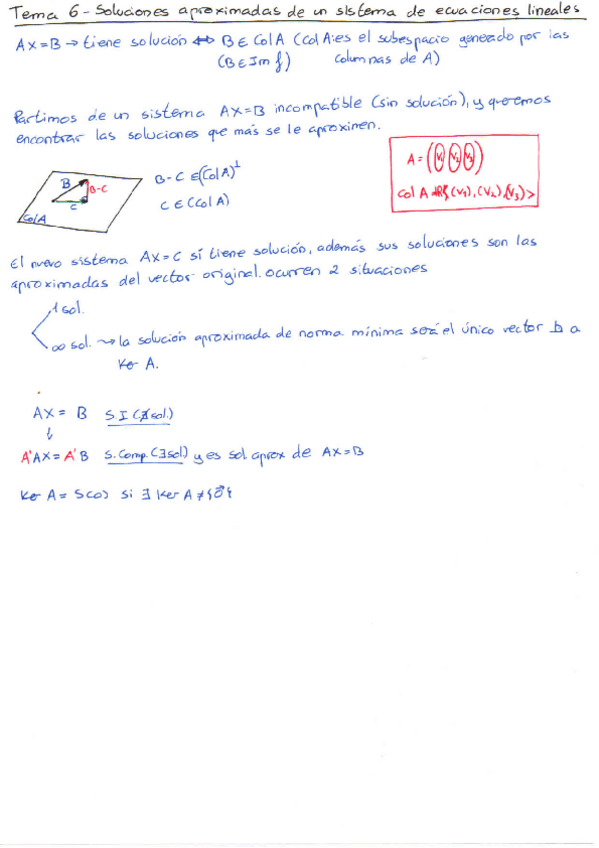 Tema 6 - Soluciones aproximadas de un sistema de ecuaciones lineales
AX=B → tiene solución ↔ B ∈ Col A (Col A: es el subespacio generado por las
(B ∈ Im f) columnas de A)
Partimos de un sistema AX=B incompatible (sin solución), y queremos
encontrar las soluciones que más se le aproximen.
B B-C C Col A
B-C ∈ (Col A)⊥
C ∈ (Col A)
A = (V1 V2 V3)
Col A (V1), (V2), (V3) >
El nuevo sistema AX=C sí tiene solución, además sus soluciones son las
aproximadas del vector original. ocurren 2 situaciones
1 sol.
∞ sol. → la solución aproximada de norma mínima será el único vector ⊥ a
Ker A.
AX = B S.I (∄ sol.)
↓
AᵗAX = AᵗB S. Comp. (∃ sol) y es sol aprox de AX=B
Ker A = S(0) si ∃ Ker A ≠ {0⃗}